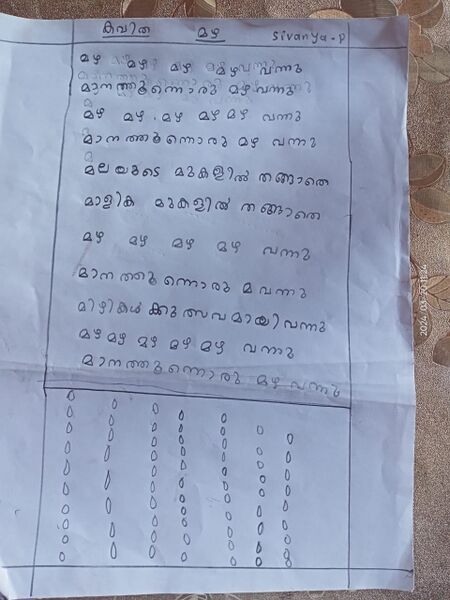 കവിത മഴ Sivanya-P
മഴ മഴ മഴ മഴ വന്നു
മാനത്തുന്നൊരു മഴ വന്നു
മഴ മഴ മഴ മഴ മഴ വന്നു
മാനത്തുന്നൊരു മഴ വന്നു
മലയുടെ മുകളിൽ തങ്ങാതെ
മാളിക മുകളിൽ തങ്ങാതെ
മഴ മഴ മഴ മഴ വന്നു
മാനത്തുന്നൊരു മ വന്നു
മിഴികൾക്കുത്സവമായി വന്നു
മഴ മഴ മഴ മഴ മഴ വന്നു
മാനത്തുന്നൊരു മഴ വന്നു